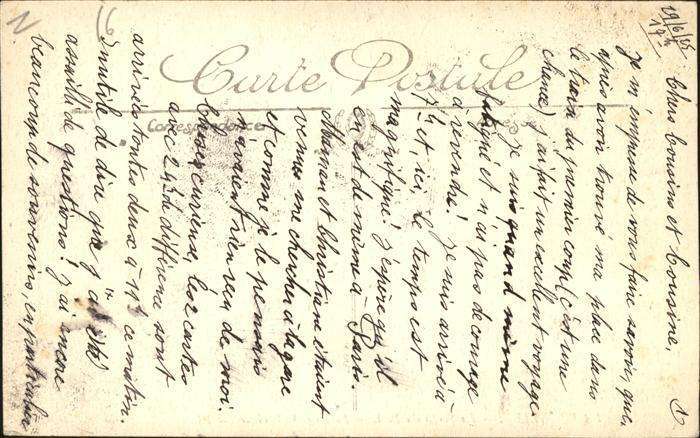 Carte Postale
Correspondance
29/6/
17h
Chers Cousins et Cousine,
Je m'empresse de vous faire savoir, que,
après avoir trouvé ma place dans
le train du premier coup (c'est une
chance) j'ai fait un excellent voyage
Je suis quand même
fatigué et n'ai pas de courage
à revendre! Je suis arrivé à
et, ici, le temps est
magnifique! J'espère qu'il
en est de même à Paris.
Maman et Christiane étaient
venues me chercher à la gare
et comme je le pensais
n'avaient rien reçu de moi.
Chose curieuse, les 2 cartes
avec 24h de différence sont
arrivées toutes deux à 11h ce matin.
Inutile de dire que j'ai été
assailli de questions! J'ai encore
beaucoup de souvenirs, en particulier